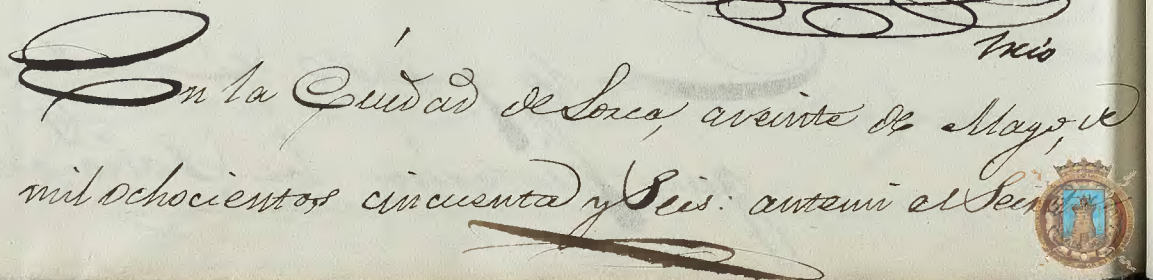 En la Ciudad de Lorca, aveinte de Mayo, de
mil ochocientos cincuenta y Seis: antemi el